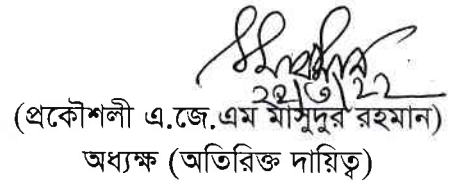 (প্রকৌশলী এ.জে.এম মাসুদুর রহমান)
অধ্যক্ষ (অতিরিক্ত দায়িত্ব)